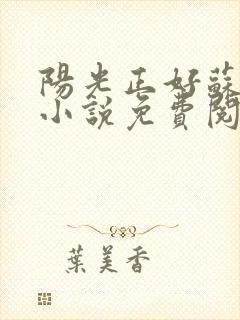 陽光正好蘇
小說免費閱
葉美香